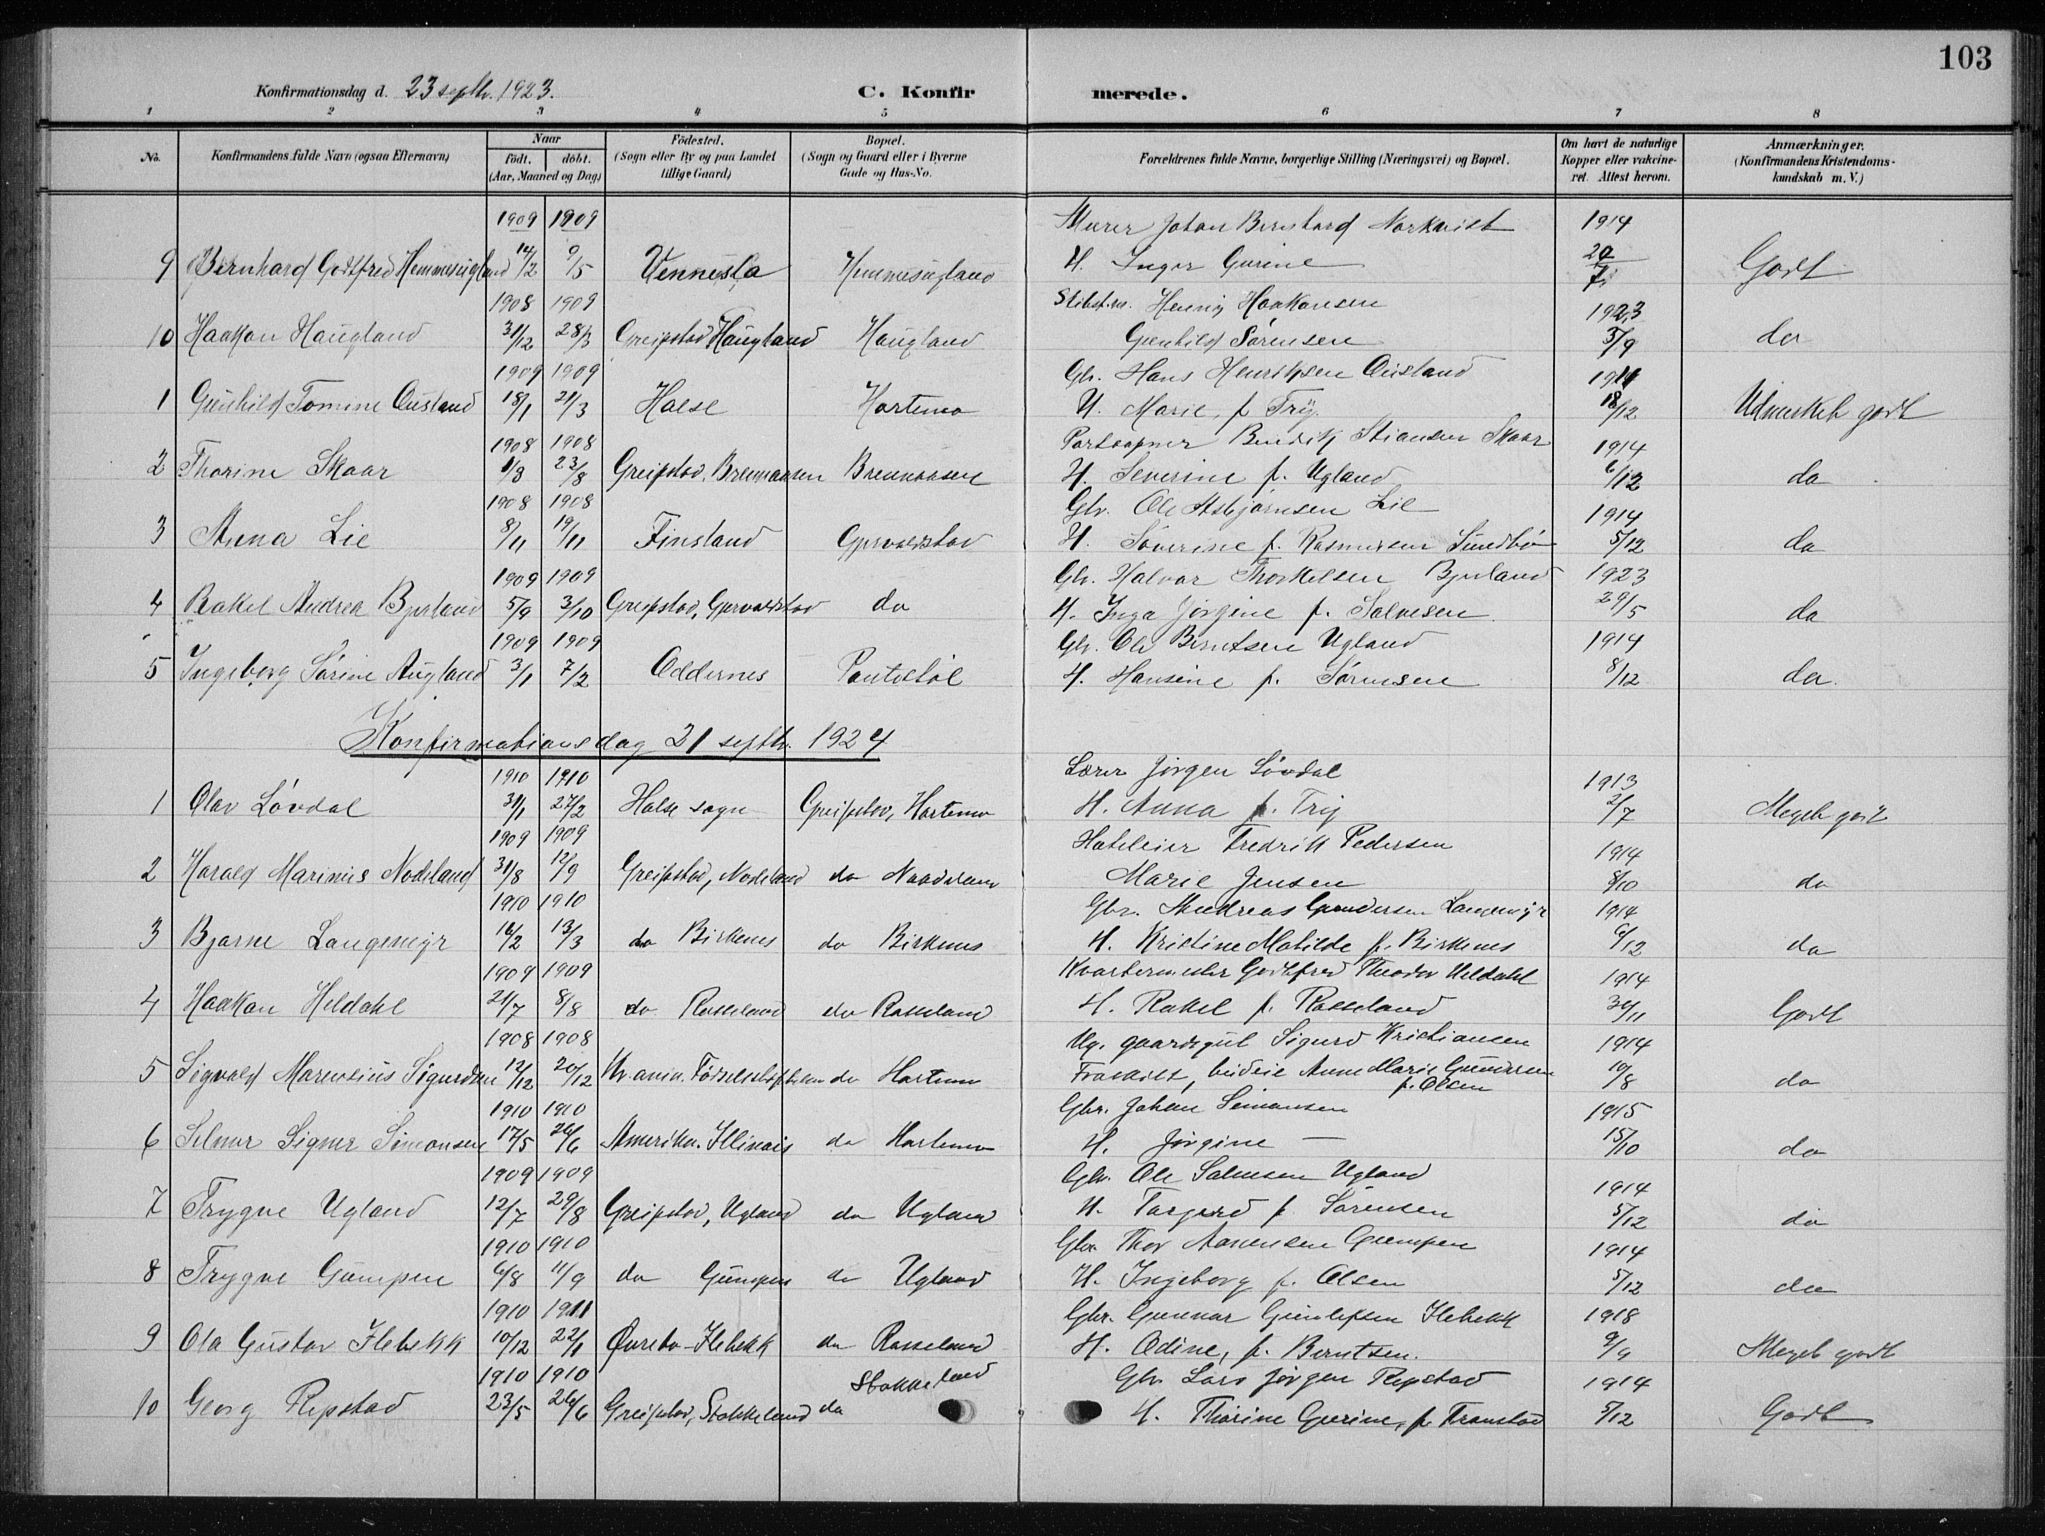 103
Konfirmationsdag d. 23 septb. 1923.
C. Konfirmerede.
1 2 3 4 5 6 7 8
No.
Konfirmandens fulde Navn (ogsaa Efternavn)
Naar
født. døbt.
(Aar, Maaned og Dag)
Fødested.
(Sogn eller By og paa Landet
tillige Gaard)
Bopæl.
(Sogn og Gaard eller i Byerne
Gade og Hus-No.
Forældrenes fulde Navne, borgerlige Stilling (Næringsvei) og Bopæl.
Om havt de naturlige
Kopper eller vakcine-
ret. Attest herom.
Anmærkninger.
(Konfirmandens Kristendoms-
kundskab m. V.)
1909 1909 Murer Johan Bernhard Norkvist 1914
9 Bernhard Godtfred Hemmesugland 14/2 9/5 Vennesla Hemmesugland H. Inger Gurine Godt
1908 1909 Henrij Haakonsen 1923
10 Haakon Haugland 31/12 28/3 Greipstad Haugland Haugland Gunhild Sørensen 3/9 do
1909 1909 Gbr. Hans Henriksen Ousland 1911
1 Gunhild Tomine Ousland 18/1 21/3 Halse Hortemo H. Marie f. Try 18/12 Udmerket godt
1908 1908 Bendik Stiansen Skaar 1914
2 Thorine Skaar 1/8 23/8 Greipstad, Brennaasen Brennaasen H. Severine f. Ugland 6/12 do
1908 1908 Gbr. Ole Asbjørnsen Lie 1914
3 Anna Lie 8/11 19/11 Finsland Gjervoldstad H. Severine f. Rasmussen Sundbø 5/12 do
1909 1909 Gbr. Halvor Thorkelsen Bjorland 1923
4 Rakel Andrea Bjorland 5/9 3/10 Greipstad, Gjervoldstad do H. Inga Jørgine f. Salvesen 29/5 do
1909 1909 Gbr. Ole Berntsen Ugland 1914
5 Ingeborg Sørine Augland 3/1 7/2 Oddernes H. Hansine f. Sørensen 8/12 do
Konfirmationsdag 21 septb. 1924
1910 1910 Lærer Jørgen Løvdal 1913
1 Olav Løvdal 31/1 27/2 Halse sogn Greipstad, Hortemo H. Anna f. Try 2/7 Meget godt
1909 1909 Fredrik Pedersen 1914
2 Harald Marinius Nodeland 31/8 12/9 Greipstad, Nodeland do Marie Jensen 8/10 do
1910 1910 Gbr. Andreas Gundersen Langemyr 1914
3 Bjarne Langemyr 16/2 13/3 do Birkenes do Birkenes H. Kristine Matilde f. Birkenes 6/12 do
1909 1909 Kvartermester Godtfred Theodor Heldahl 1914
4 Haakon Heldahl 21/7 8/8 do Rosseland do Rosseland H. Rakel f. Rosseland 30/11 Godt
1908 1908 Ug. gaardsgut Sigurd Kristiansen 1914
5 Sigvald Marenlius Sigurdsen 12/12 20/12 do Hortemo Fraskilt, budeie Anne Marie Gundersen f. Olsen 10/8 do
1910 1910 Gbr. Johan Simonsen 1915
6 Selmer Signer Simonsen 17/5 26/6 Amerika. Illinois do Hortemo H. Jørgine — 15/10 do
1909 1909 Gbr. Ole Salvesen Ugland 1914
7 Trygve Ugland 12/7 29/8 Greipstad, Ugland do Ugland H. Torgerd f. Sørensen 5/12 do
1910 1910 Gbr. Thor Aanensen Gumpen 1914
8 Trygve Gumpen 6/8 11/9 do Gumpen do Ugland H. Ingeborg f. Olsen 5/12 do
1910 1911 Gbr. Gunnar Gunleksen Ilebekk 1918
9 Ola Gustav Ilebekk 10/12 22/1 Øvrebø Ilebekk do Rosseland H. Odine, f. Berntsen. 9/9 Meget godt
1910 1910 Stokkeland Gbr. Lars Jørgen Repstad 1914
10 Georg Repstad 23/5 26/6 Greipstad, Stokkeland do H. Thorine Gurine, f. Tronstad 5/12 Godt